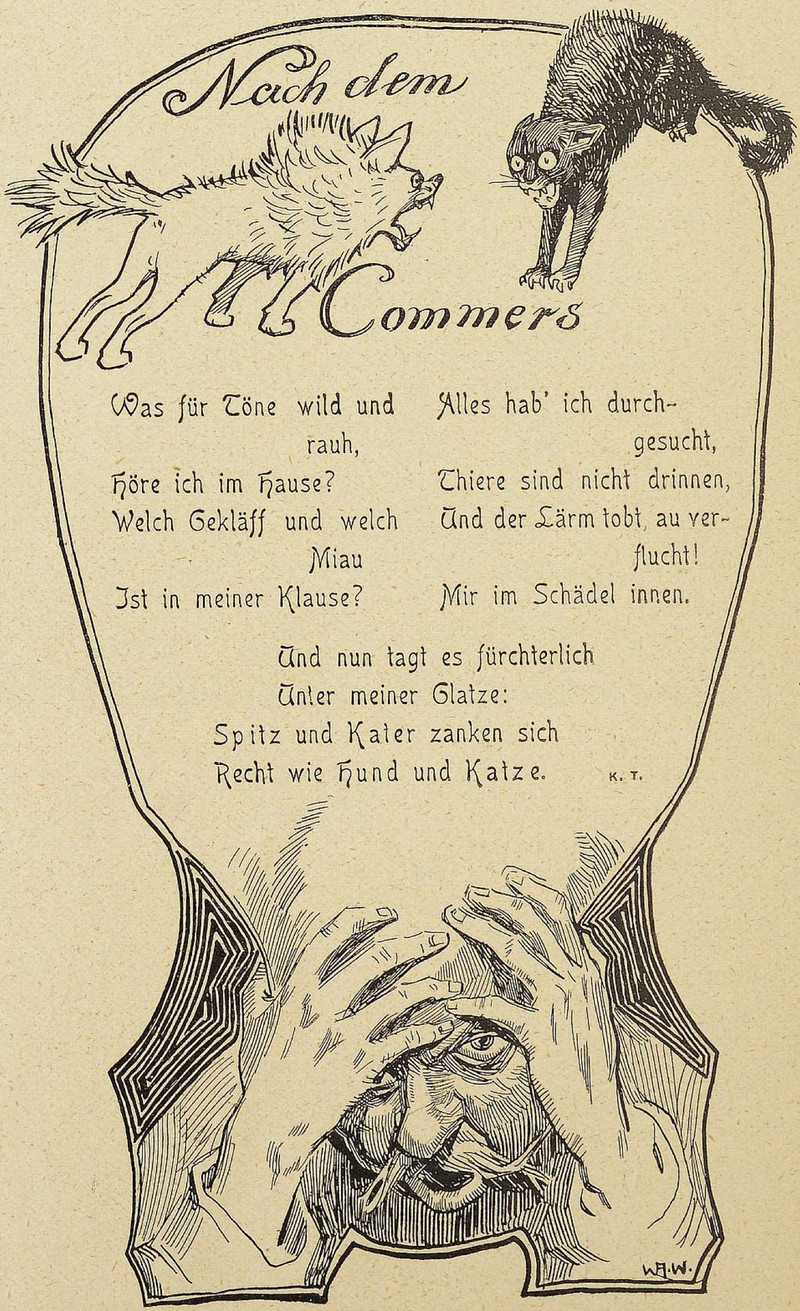 Nach dem
Commers
Was für Töne wild und
rauh,
Höre ich im Hause?
Welch Gekläff und welch
Miau
Ist in meiner Klause?
Alles hab' ich durch-
gesucht,
Thiere sind nicht drinnen,
Und der Lärm tobt, au ver-
flucht!
Mir im Schädel innen.
Und nun tagt es fürchterlich
Unter meiner Glatze:
Spitz und Kater zanken sich
Recht wie Hund und Katze.
K. T.
W.A.W.